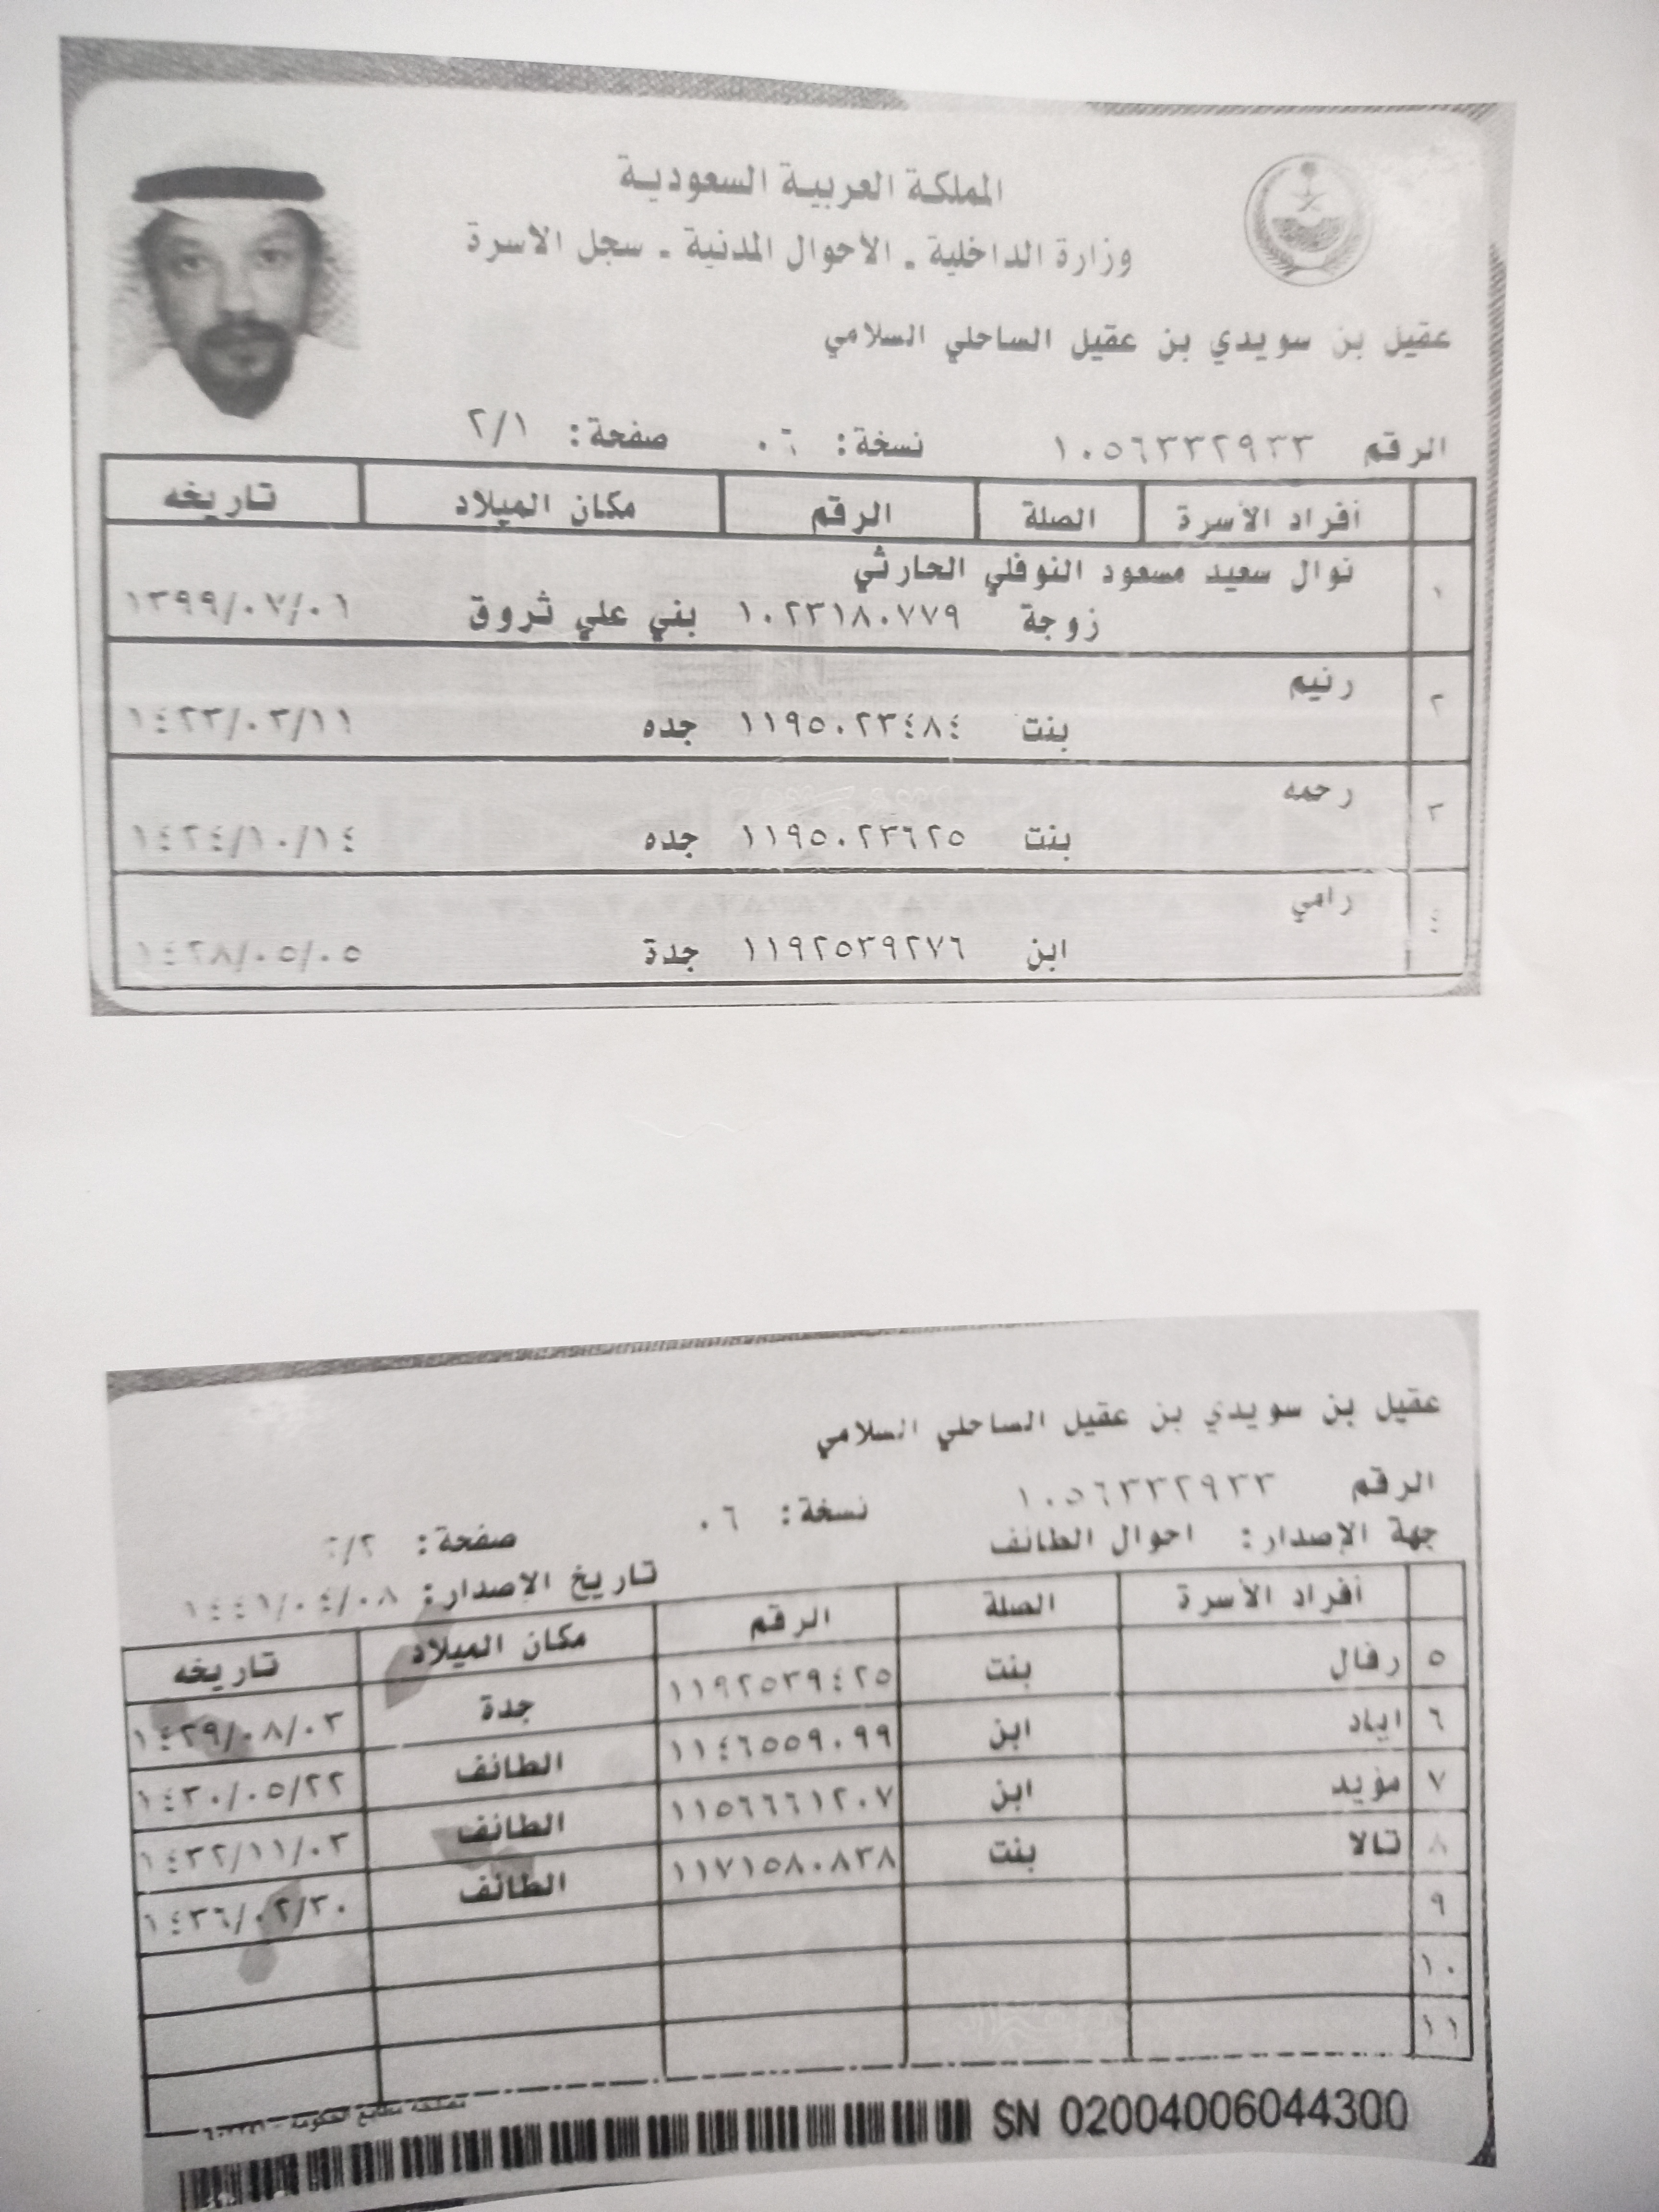 المملكة العربية السعودية
وزارة الداخلية ـ الأحوال المدنية ـ سجل الاسرة
عقيل بن سويدي بن عقيل الساحلي السلامي
الرقم ١٠٥٦٣٣٢٩٣٣ نسخة: ٠٦ صفحة: ٢/١
أفراد الأسرة الصلة الرقم مكان الميلاد تاريخه
١ نوال سعيد مسعود النوفلي الحارثي
زوجة ١٠٢٣١٨٠٧٧٩ بني علي ثروق ١٣٩٩/٠٧/٠١
٢ رنيم
بنت ١١٩٥٠٢٣٤٨٤ جده ١٤٢٣/٠٣/١١
٣ رحمه
بنت ١١٩٥٠٢٣٦٢٥ جده ١٤٢٤/١٠/١٤
٤ رامي
ابن ١١٩٢٥٣٩٢٧٦ جدة ١٤٢٨/٠٥/٠٥
عقيل بن سويدي بن عقيل الساحلي السلامي
الرقم ١٠٥٦٣٣٢٩٣٣ نسخة: ٠٦ صفحة: ٢/٢
جهة الإصدار: احوال الطائف تاريخ الإصدار: ١٤٤١/٠٤/٠٨
أفراد الأسرة الصلة الرقم مكان الميلاد تاريخه
٥ رفال بنت ١١٩٢٥٣٩٤٢٥ جدة ١٤٢٩/٠٨/٠٣
٦ اياد ابن ١١٤٦٥٥٩٠٩٩ الطائف ١٤٣٠/٠٥/٢٢
٧ مؤيد ابن ١١٥٦٦٦١٢٠٧ الطائف ١٤٣٢/١١/٠٣
٨ تالا بنت ١١٧١٥٨٠٨٣٨ الطائف ١٤٣٦/٠٢/٣٠
٩
١٠
١١
مصلحة مطابع الحكومة
SN 02004006044300